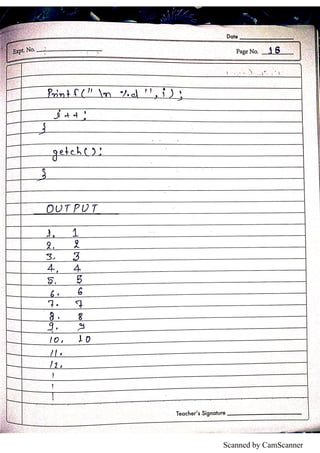 Date
Expt. No.
Page No. 16
Printf(" \n %d ", i);
i++;
}
getch();
}
OUTPUT
1. 1
2. 2
3. 3
4. 4
5. 5
6. 6
7. 7
8. 8
9. 9
10. 10
11.
12.
Teacher's Signature
Scanned by CamScanner